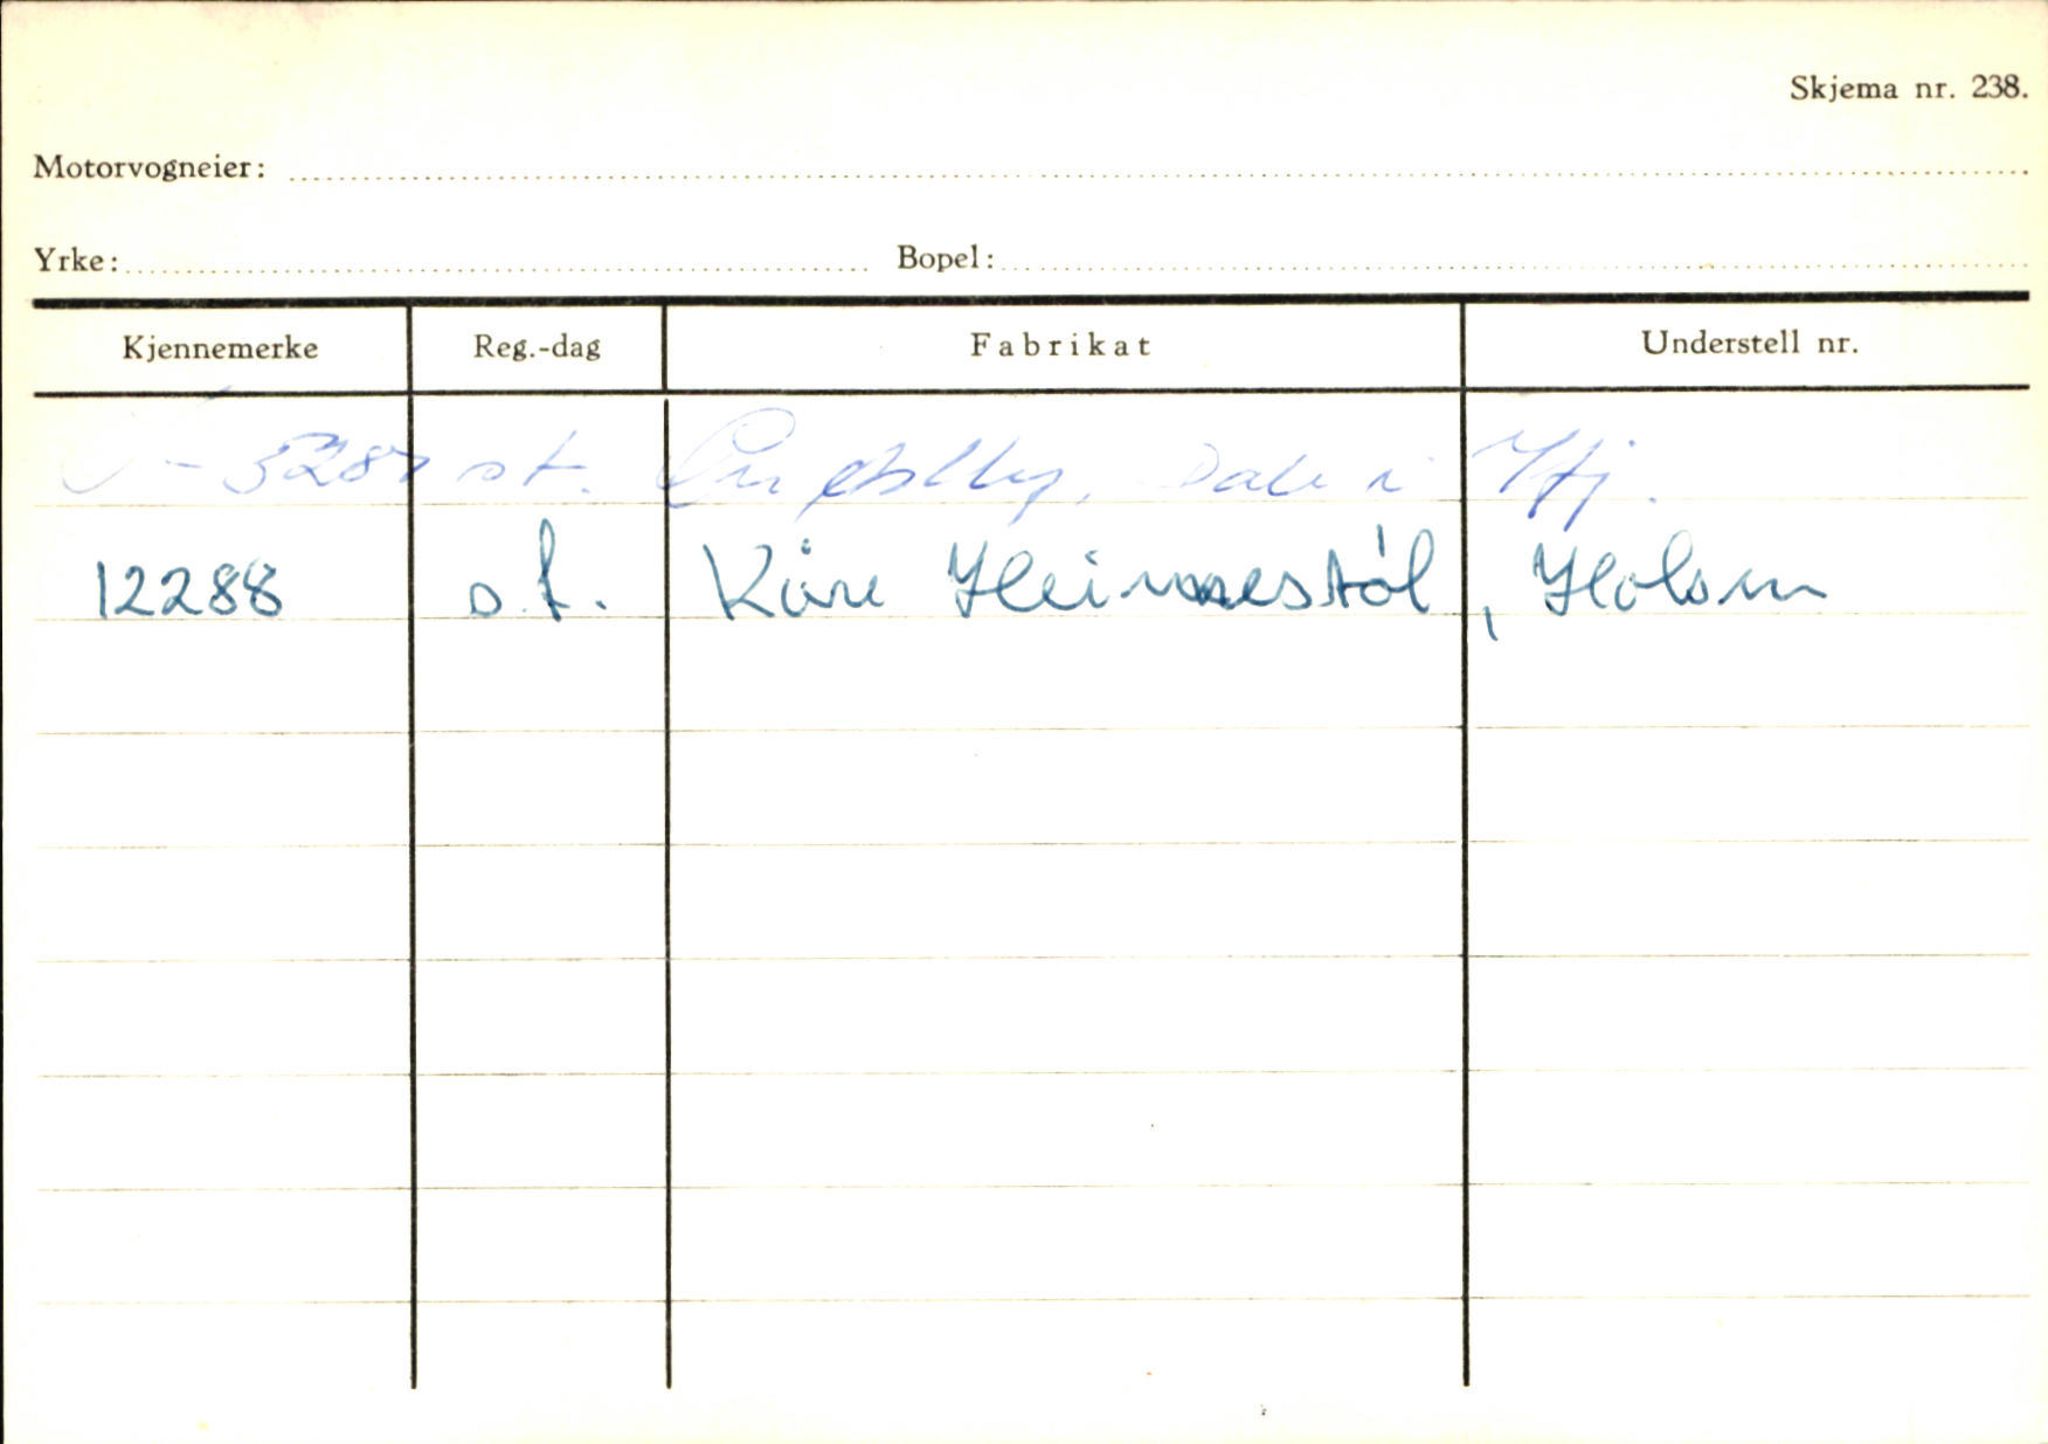 Skjema nr. 238.
Motorvogneier:
Yrke: Bopel:
Kjennemerke Reg.-dag Fabrikat Understell nr.
st. Dale i
12288 s.f. Kåre Heimestøl, Holsen